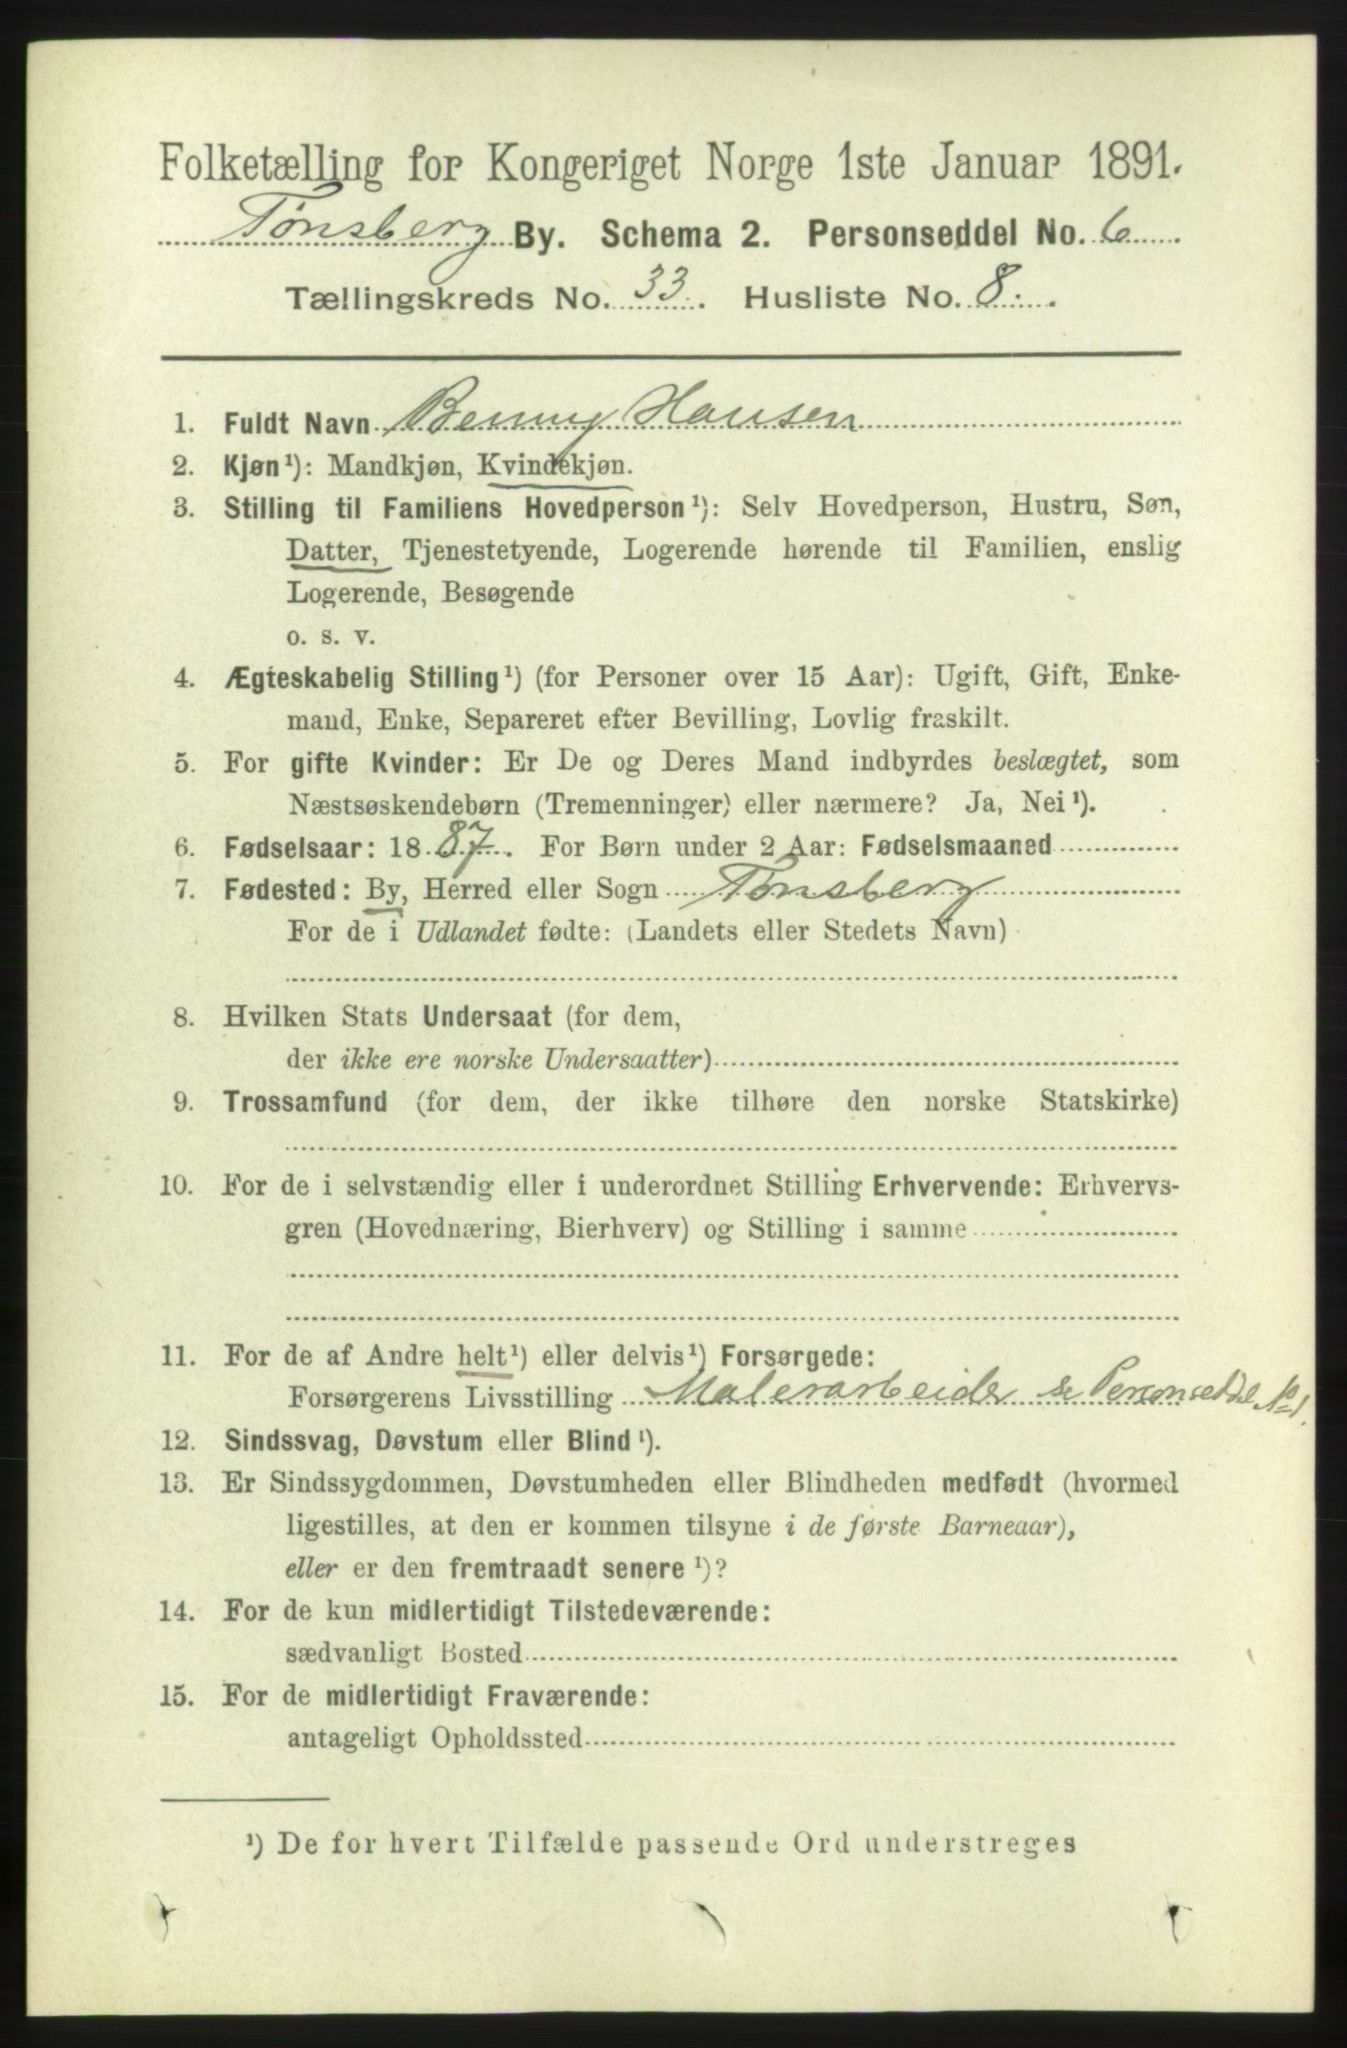 Folketælling for Kongeriget Norge 1ste Januar 1891.
Tønsberg By. Schema 2. Personseddel No. 6
Tællingskreds No. 33. Husliste No. 8.
1. Fuldt Navn Benny Hansen
2. Kjøn¹): Mandkjøn, Kvindekjøn.
3. Stilling til Familiens Hovedperson¹): Selv Hovedperson, Hustru, Søn,
Datter, Tjenestetyende, Logerende hørende til Familien, enslig
Logerende, Besøgende
o. s. v.
4. Ægteskabelig Stilling¹) (for Personer over 15 Aar): Ugift, Gift, Enke-
mand, Enke, Separeret efter Bevilling, Lovlig fraskilt.
5. For gifte Kvinder: Er De og Deres Mand indbyrdes beslægtet, som
Næstsøskendebørn (Tremenninger) eller nærmere? Ja, Nei¹).
6. Fødselsaar: 1887. For Børn under 2 Aar: Fødselsmaaned
7. Fødested: By, Herred eller Sogn Tønsberg
For de i Udlandet fødte: (Landets eller Stedets Navn)
8. Hvilken Stats Undersaat (for dem,
der ikke ere norske Undersaatter)
9. Trossamfund (for dem, der ikke tilhøre den norske Statskirke)
10. For de i selvstændig eller i underordnet Stilling Erhvervende: Erhvervs-
gren (Hovednæring, Bierhverv) og Stilling i samme
11. For de af Andre helt¹) eller delvis¹) Forsørgede:
Forsørgerens Livsstilling Malerarbeider se Personseddel No 1.
12. Sindssvag, Døvstum eller Blind¹).
13. Er Sindssygdommen, Døvstumheden eller Blindheden medfødt (hvormed
ligestilles, at den er kommen tilsyne i de første Barneaar),
eller er den fremtraadt senere¹)?
14. For de kun midlertidigt Tilstedeværende:
sædvanligt Bosted
15. For de midlertidigt Fraværende:
antageligt Opholdssted
¹) De for hvert Tilfælde passende Ord understreges